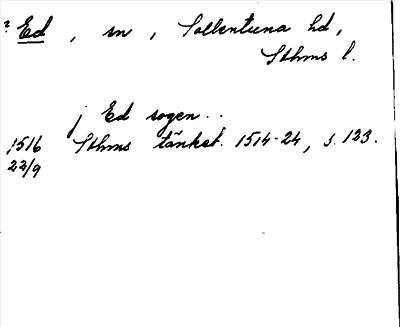 ? Ed, sn, Sollentuna hd,
Sthms l.
j Ed sogen..
1516 Sthms tänkeb. 1514-24, s. 123.
22/9